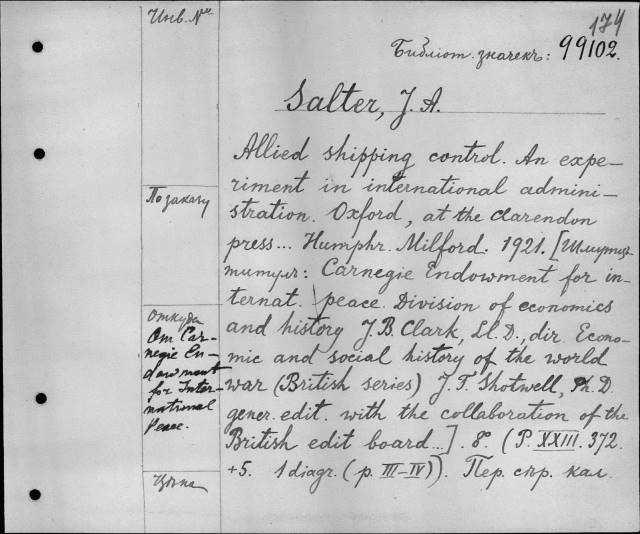 Инв. №
174
Библіот. значекъ: 99102.
Salter, J. A.
Allied shipping control. An expe-
riment in international admini-
stration. Oxford, at the clarendon
press... Humphr. Milford. 1921. [Шмуц
титулъ: Carnegie Endowment for in-
ternat. peace. Division of economics
and history J. B. Clark, Ll. D., dir. Econo-
mic and social history of the world
war (British series) J. T. Shotwell, Ph. D.
gener. edit. with the collaboration of the
British edit board...]. 8°. (P. XXIII. 372.
+5. 1 diagr. (p. III-IV)). Пер. кал.
По заказу
Откуда
Om Car-
negie En-
dowment
for Inter-
national
Peace.
Цѣна